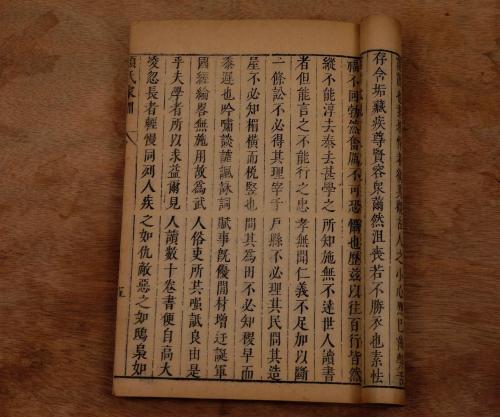 存含垢藏疾尊賢容衆薾然沮喪若不勝衣也素怯
福不回勃然奮厲不可恐懾也歷茲以往百行皆然
縱不能淳去泰去甚學之所知施無不達世人讀書
者但能言之不能行之忠孝無聞仁義不足加以斷
一條訟不必得其理宰千戶縣不必理其民問其造
屋不必知楣橫而梲豎也問其爲田不必知稷早而
黍遲也吟嘯談謔諷詠詞賦事旣優閒材增迂誕軍
國經綸畧無施用故爲武人俗吏所共嗤詆良由是
乎夫學者所以求益爾見人讀數十卷書便自高大
凌忽長者輕慢同列人疾之如仇敵惡之如鴟梟如
顏氏家訓
五